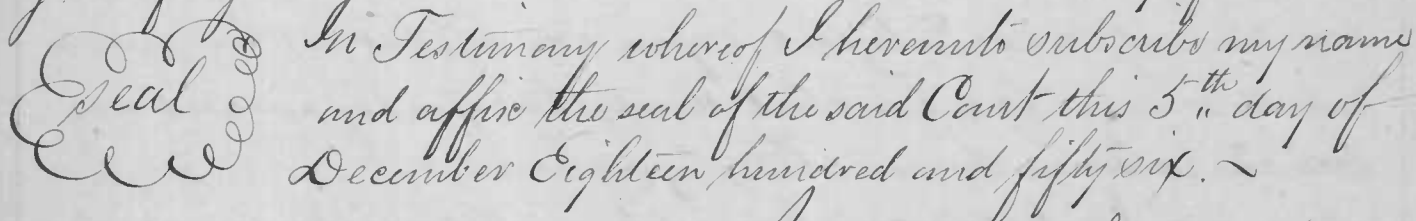 seal
In Testimony whereof I hereunto subscribe my name
and affix the seal of the said Court this 5th day of
December Eighteen hundred and fifty six. ~